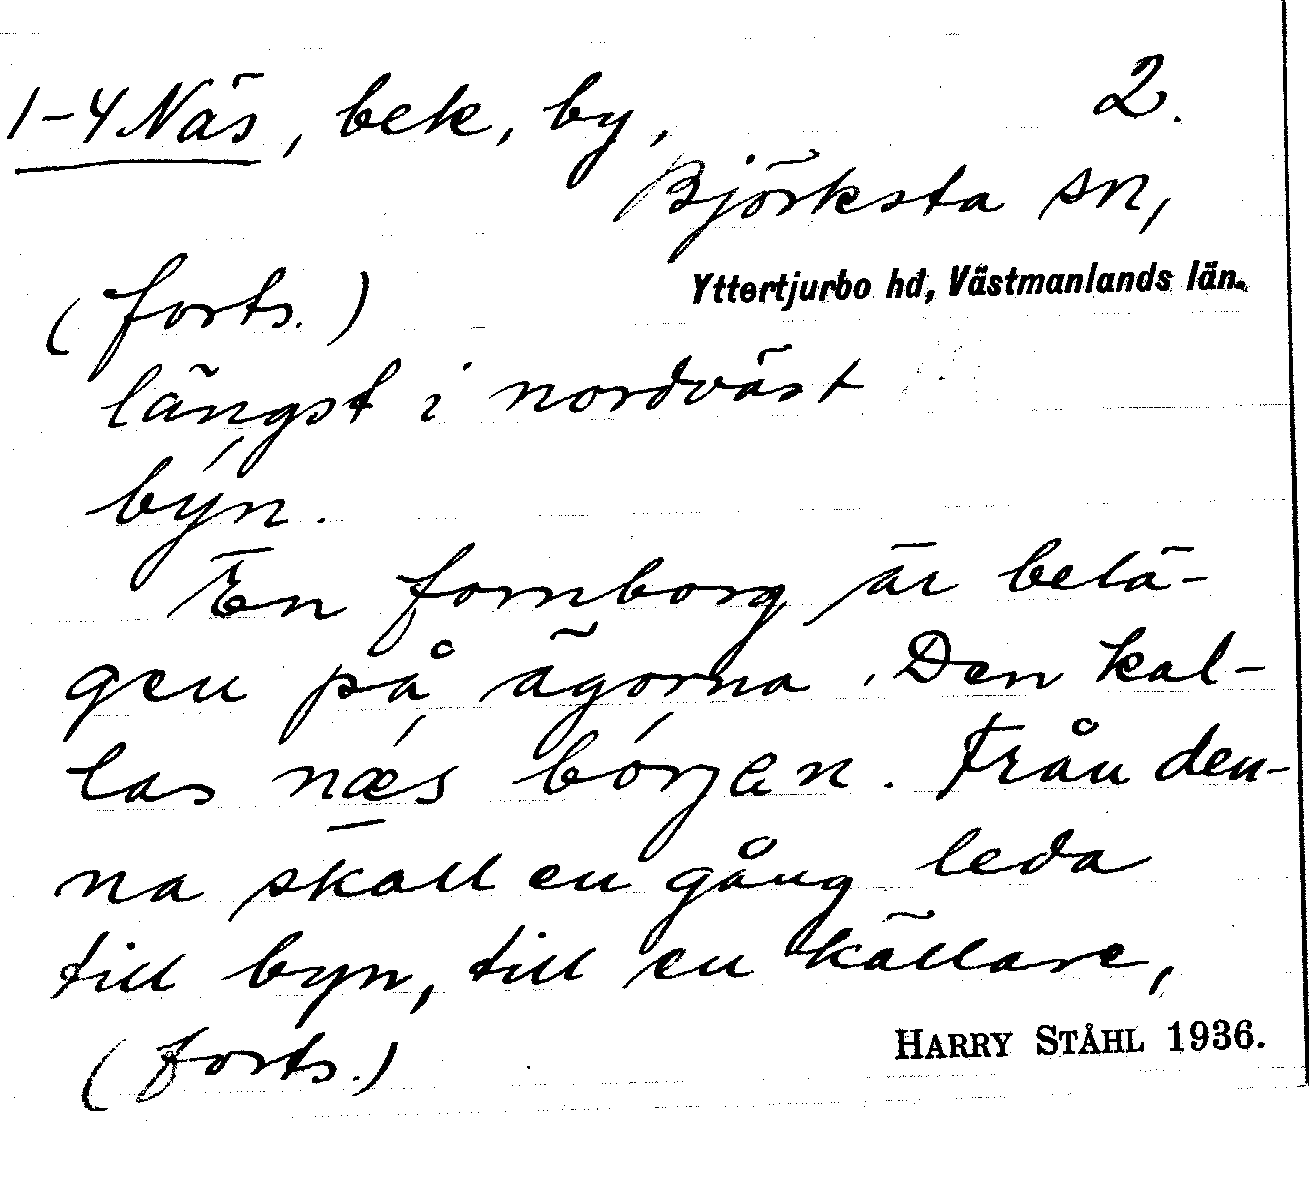 1-4 Näs, bek, by, 2.
Björksta sn,
Yttertjurbo hd, Västmanlands län.
(forts.)
längst i nordväst
býn.
En fornborg är belä-
gen på ägorna. Den kal-
las næ´s bórjan. Från den-
na skall en gång leda
till byn, till en källare,
(forts.)
HARRY STÅHL 1936.